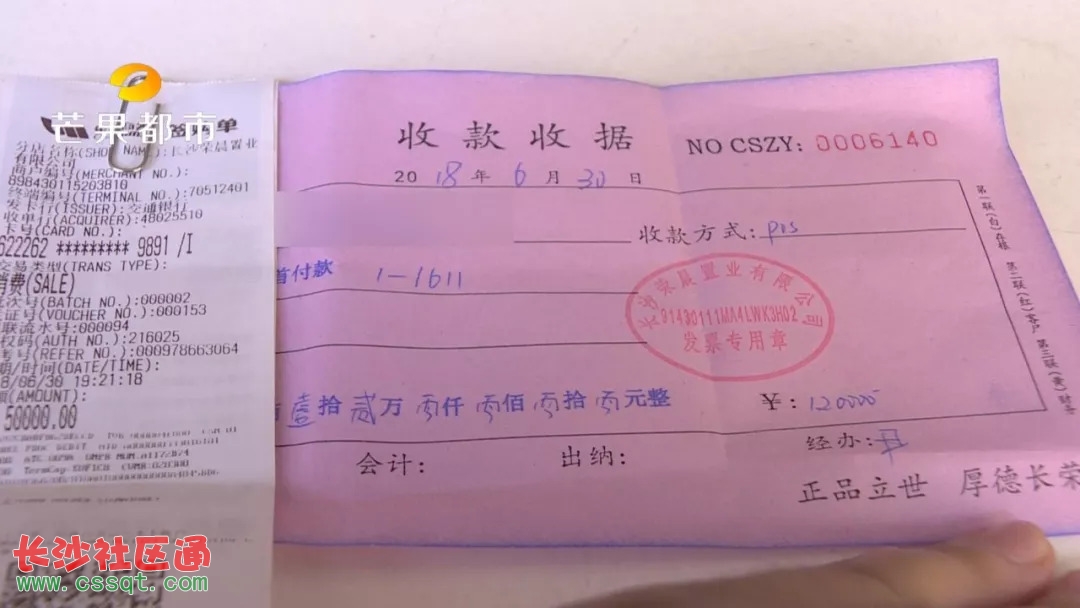 芒果都市
分店名称(SHOP NAME):长沙荣晨置业
有限公司
商户编号(MERCHANT NO.):
898430115203810
终端编号(TERMINAL NO.):70512401
发卡行(ISSUER):交通银行
收单行(ACQUIRER):48025510
卡号(CARD NO.):
622262 ********* 9891 /I
交易类型(TRANS TYPE):
消费(SALE)
次号(BATCH NO.):000002
证号(VOUCHER NO.):000153
联流水号:000094
权码(AUTH NO.):216025
考号(REFER NO.):000978663064
期/时间(DATE/TIME):
8/06/30 19:21:18
额(AMOUNT):
50000.00
收款收据
NO CSZY: 0006140
2018年6月30日
收款方式: pos
首付款 1-1611
长房荣晨置业有限公司
91430111MA4LWK3H02
发票专用章
壹拾贰万零仟零佰零拾零元整
¥: 120000
会计:
出纳:
经办:
正品立世 厚德长荣
第一联(白)存根 第二联(红)客户 第三联(黄)财务
长沙社区通
www.cssqt.com